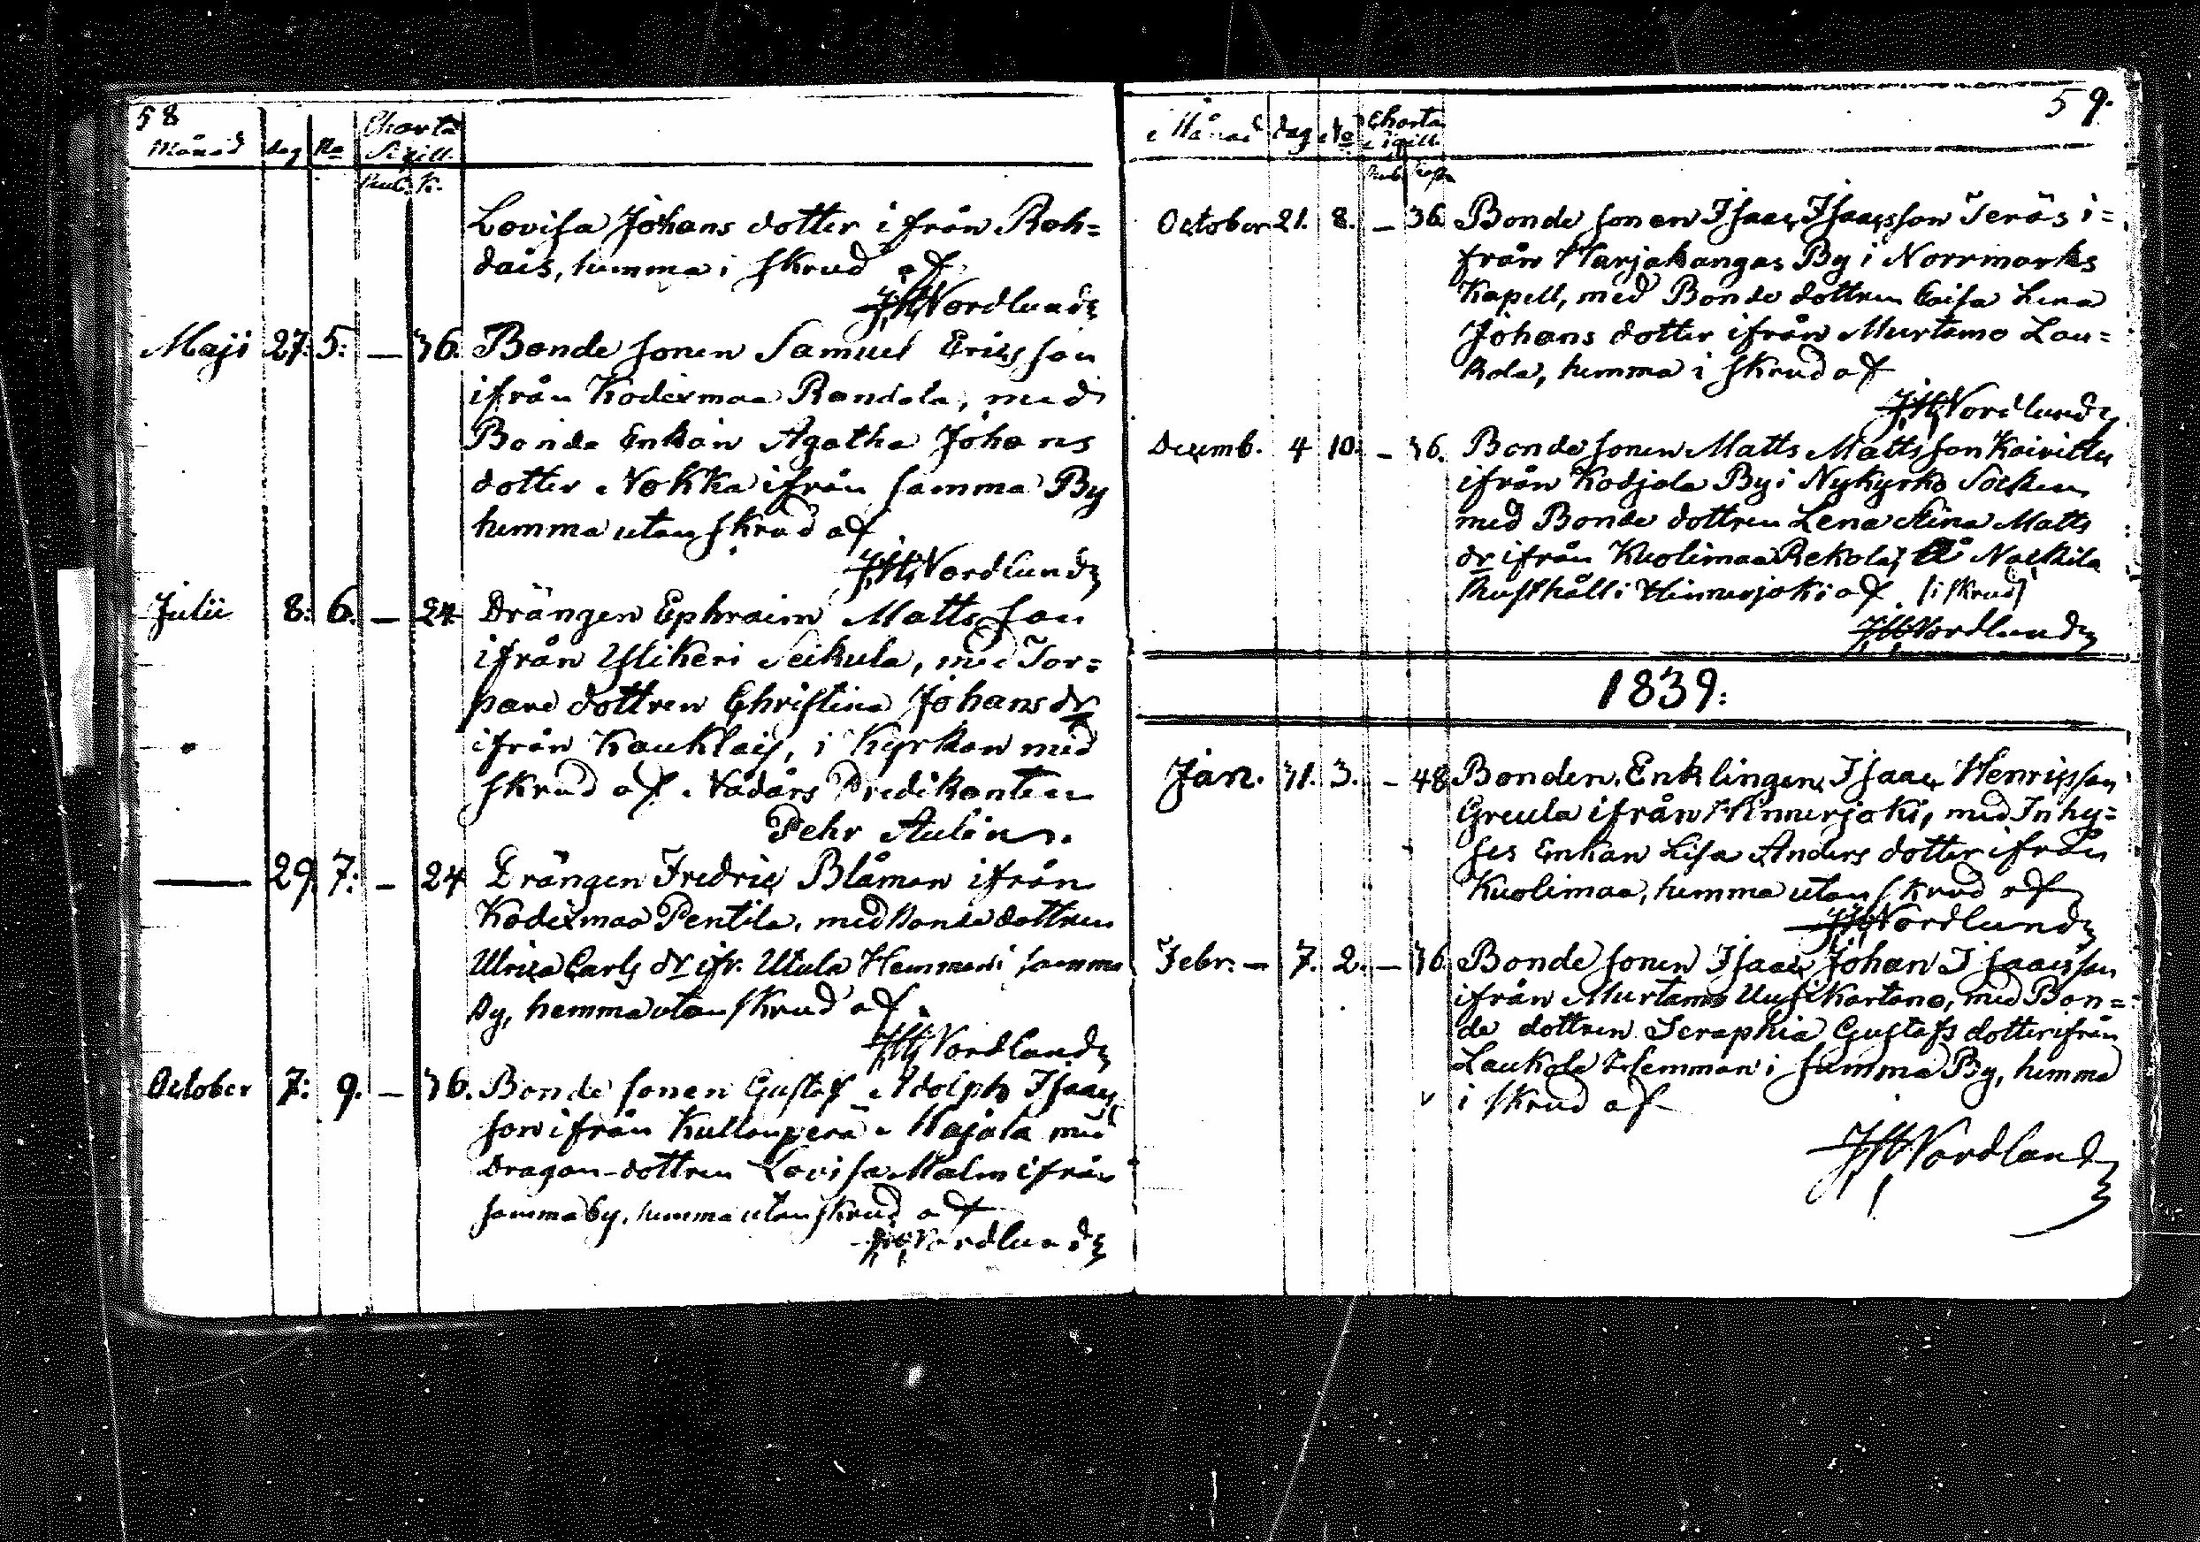 58
Månad dag No Charta Sigill.
Rub. K.
Lovisa Johans dotter ifrån Roh=
dais, hemma i skrud af
Nordlund
Maji 27. 5. — 36. Bonde sonen Samuel Ericsson
ifrån Kodixmaa Randala, med
Bonde Enkan Agatha Johans
dotter Nokka ifrån samma By
hemma utan skrud af
Nordlund
Julii 8. 6. — 24 Drängen Ephraim Matts son
ifrån Ylikeri Seikula, med Tor=
pare dottren Christina Johans dr
ifrån Kauklais, i Kyrkan med
skrud af Nådårs Predikanten
Pehr Aulén.
— 29. 7. — 24 Drängen Fredric Blåman ifrån
Kodixmaa Pentila, med Bonde dottren
Ulrica Carls dr ifr. Utula Hemman i samma
By, hemma utan skrud af
Nordlund
October 7. 9. — 36. Bonde sonen Gustaf Adolph Isaacs
son ifrån Kullanperä Majala med
Dragon-dottren Lovisa Malm ifrån
samma by, hemma utan skrud af
Nordlund
59.
Månad dag No Charta Sigill.
Rub. Kop.
October 21. 8. — 36 Bonde sonen Isaac Isaacsson Teräs i=
från Harjakangas By i Norrmarks
Kapell, med Bonde dottren Caisa Lena
Johans dotter ifrån Murtamo Lau=
kola, hemma i skrud af
Nordlund
Decemb. 4 10. — 36. Bonde sonen Matts Mattsson Koivittu
ifrån Kodjala By i Nykyrko Socken
med Bonde dottren Lena Stina Matts
dr ifrån Kuolimaa Rekola, å Naskila
Rusthåll i Hinnerjoki af (i skrud)
Nordlund
1839.
Jan. 31. 3. — 48 Bonden Enklingen Isaac Henricsson
Greula ifrån Hinnerjoki, med Inhy=
ses Enkan Lisa Anders dotter ifrån
Kuolimaa, hemma utan skrud af
Nordlund
Febr. — 7. 2. — 36 Bonde sonen Isaac Johan Isaacsson
ifrån Murtamo Uusikartano, med Bon=
de dottren Seraphia Gustafs dotter ifrån
Laukola Hemman i samma By, hemma
i skrud af
Nordlund